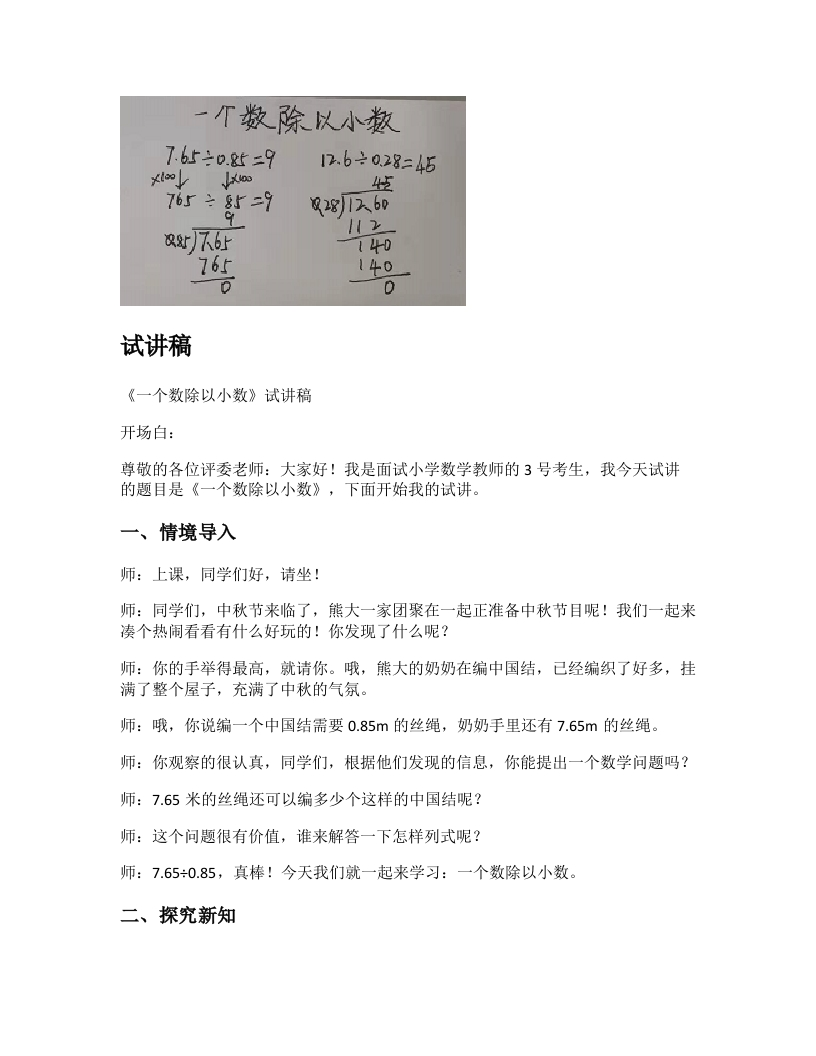 一个数除以小数
7.65÷0.85=9 12.6÷0.28=45
×100↓ ↓×100 45
765 ÷ 85=9 0.28)12.60
9 112
0.85)7.65 140
765 140
0 0
试讲稿
《一个数除以小数》试讲稿
开场白：
尊敬的各位评委老师：大家好！我是面试小学数学教师的 3 号考生，我今天试讲
的题目是《一个数除以小数》，下面开始我的试讲。
一、情境导入
师：上课，同学们好，请坐！
师：同学们，中秋节来临了，熊大一家团聚在一起正准备中秋节目呢！我们一起来
凑个热闹看看有什么好玩的！你发现了什么呢？
师：你的手举得最高，就请你。哦，熊大的奶奶在编中国结，已经编织了好多，挂
满了整个屋子，充满了中秋的气氛。
师：哦，你说编一个中国结需要 0.85m 的丝绳，奶奶手里还有 7.65m 的丝绳。
师：你观察的很认真，同学们，根据他们发现的信息，你能提出一个数学问题吗？
师：7.65 米的丝绳还可以编多少个这样的中国结呢？
师：这个问题很有价值，谁来解答一下怎样列式呢？
师：7.65÷0.85，真棒！今天我们就一起来学习：一个数除以小数。
二、探究新知